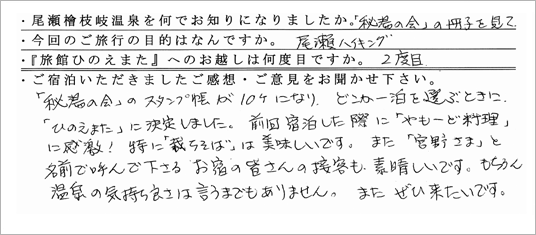 ・尾瀬檜枝岐温泉を何でお知りになりましたか。「秘湯の会」の冊子を見て
・今回のご旅行の目的はなんですか。 尾瀬ハイキング
・『旅館ひのえまた』へのお越しは何度目ですか。 2度目
・ご宿泊いただきましたご感想・ご意見をお聞かせ下さい。
「秘湯の会」のスタンプ帳が10ケになり、どこか一泊を選ぶときに、
「ひのえまた」に決定しました。前回宿泊した際に「やもーど料理」
に感激! 特に「裁ちそば」は美味しいです。また「宮野さま」と
名前で呼んで下さるお宿の皆さんの接客も素晴しいです。もちろん
温泉の気持ち良さは言うまでもありません。またぜひ来たいです。